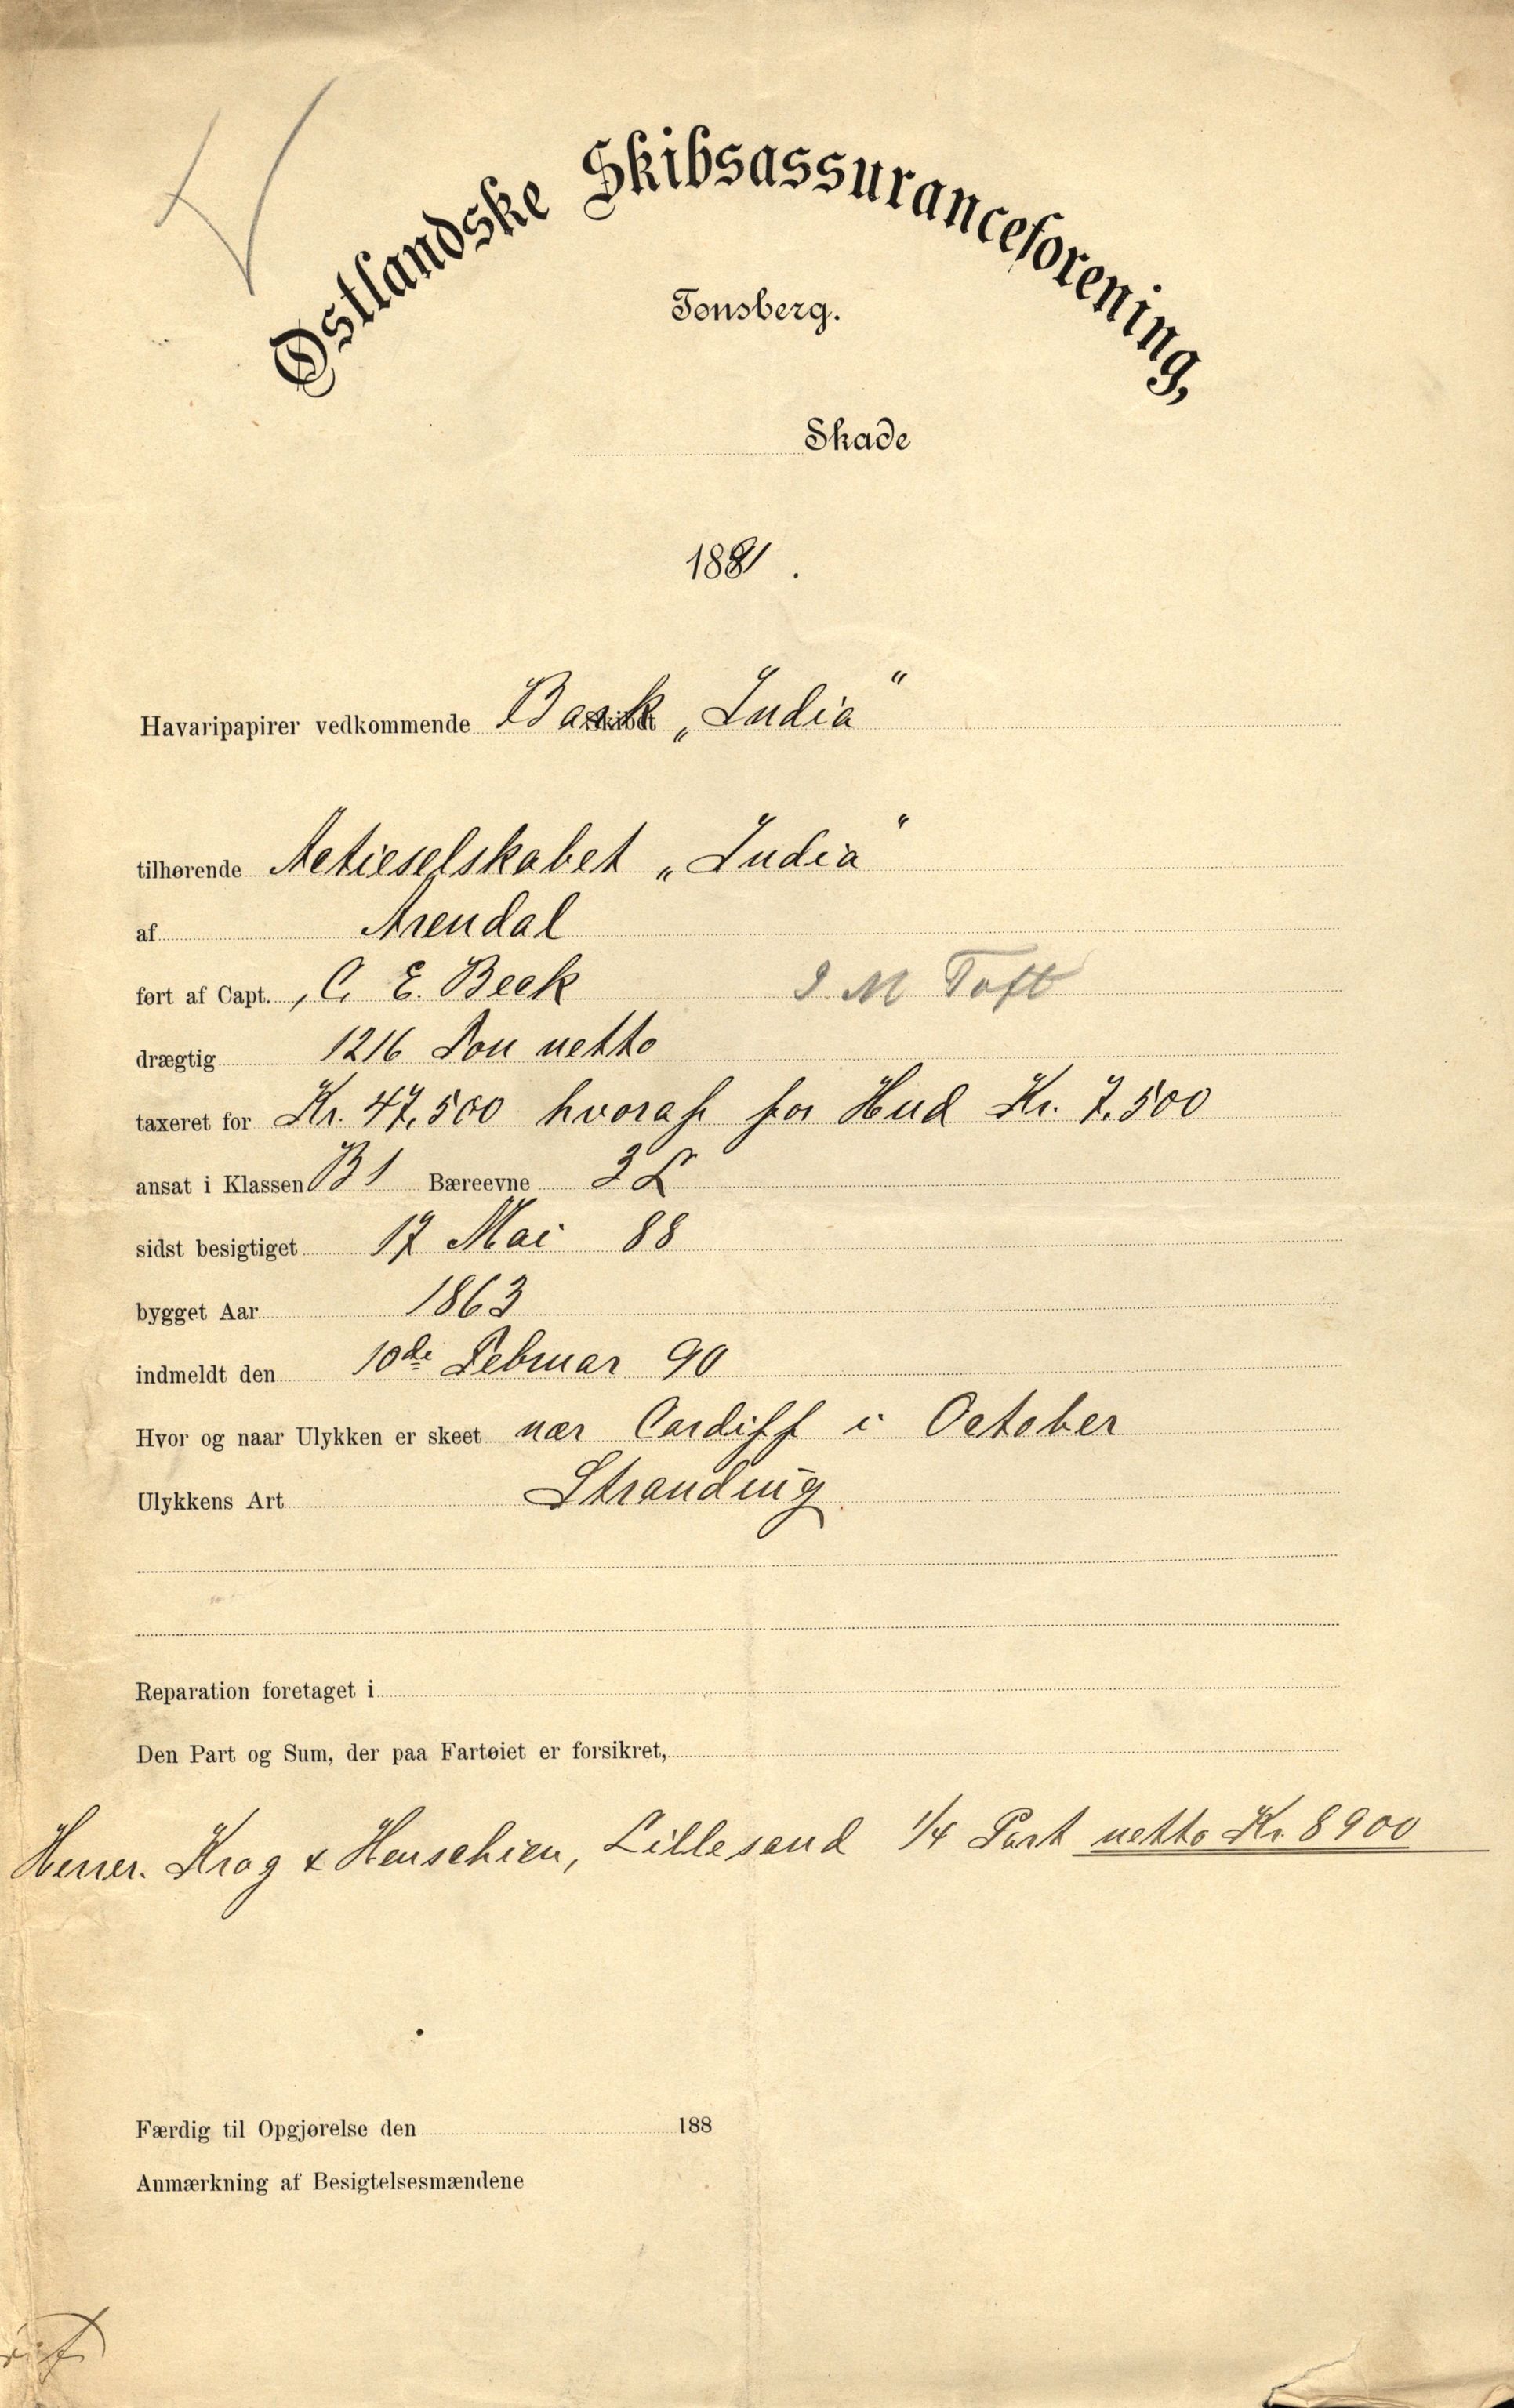 Østlandske Skibsassuranceforening,
Tønsberg.
Skade
1891.
Havaripapirer vedkommende Bark „India“
tilhørende Actieselskabet „India“
af Arendal
ført af Capt. C. E. Beck J. M Toft
drægtig 1216 Ton netto
taxeret for Kr. 47,500 hvoraf for Hud Kr. 7.500
ansat i Klassen B 1 Bæreevne 3 L
sidst besigtiget 17 Mai 88
bygget Aar 1863
indmeldt den 10de Februar 90
Hvor og naar Ulykken er skeet nær Cardiff i October
Ulykkens Art Stranding
Reparation foretaget i
Den Part og Sum, der paa Fartøiet er forsikret,
Herrer. Krog & Henschien, Lillesand 1/4 Part netto Kr. 8900
Færdig til Opgjørelse den 188
Anmærkning af Besigtelsesmændene